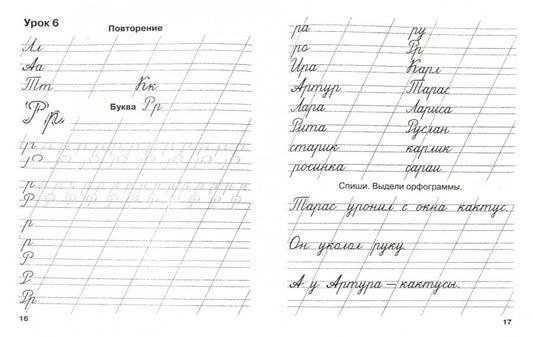 Урок 6
Повторение
Лл
Аа
Тт Кк
Буква Рр
Р р
р
р
Р
р
р
Р
Р
Рр
16
ра ру
ро Рр
Ира Карл
Артур Тарас
Лара Лариса
Рита Руслан
старик карлик
росинка сараи
Спиши. Выдели орфограммы.
Тарас уронил с окна кактус.
Он уколол руку.
А у Артура — кактусы.
17